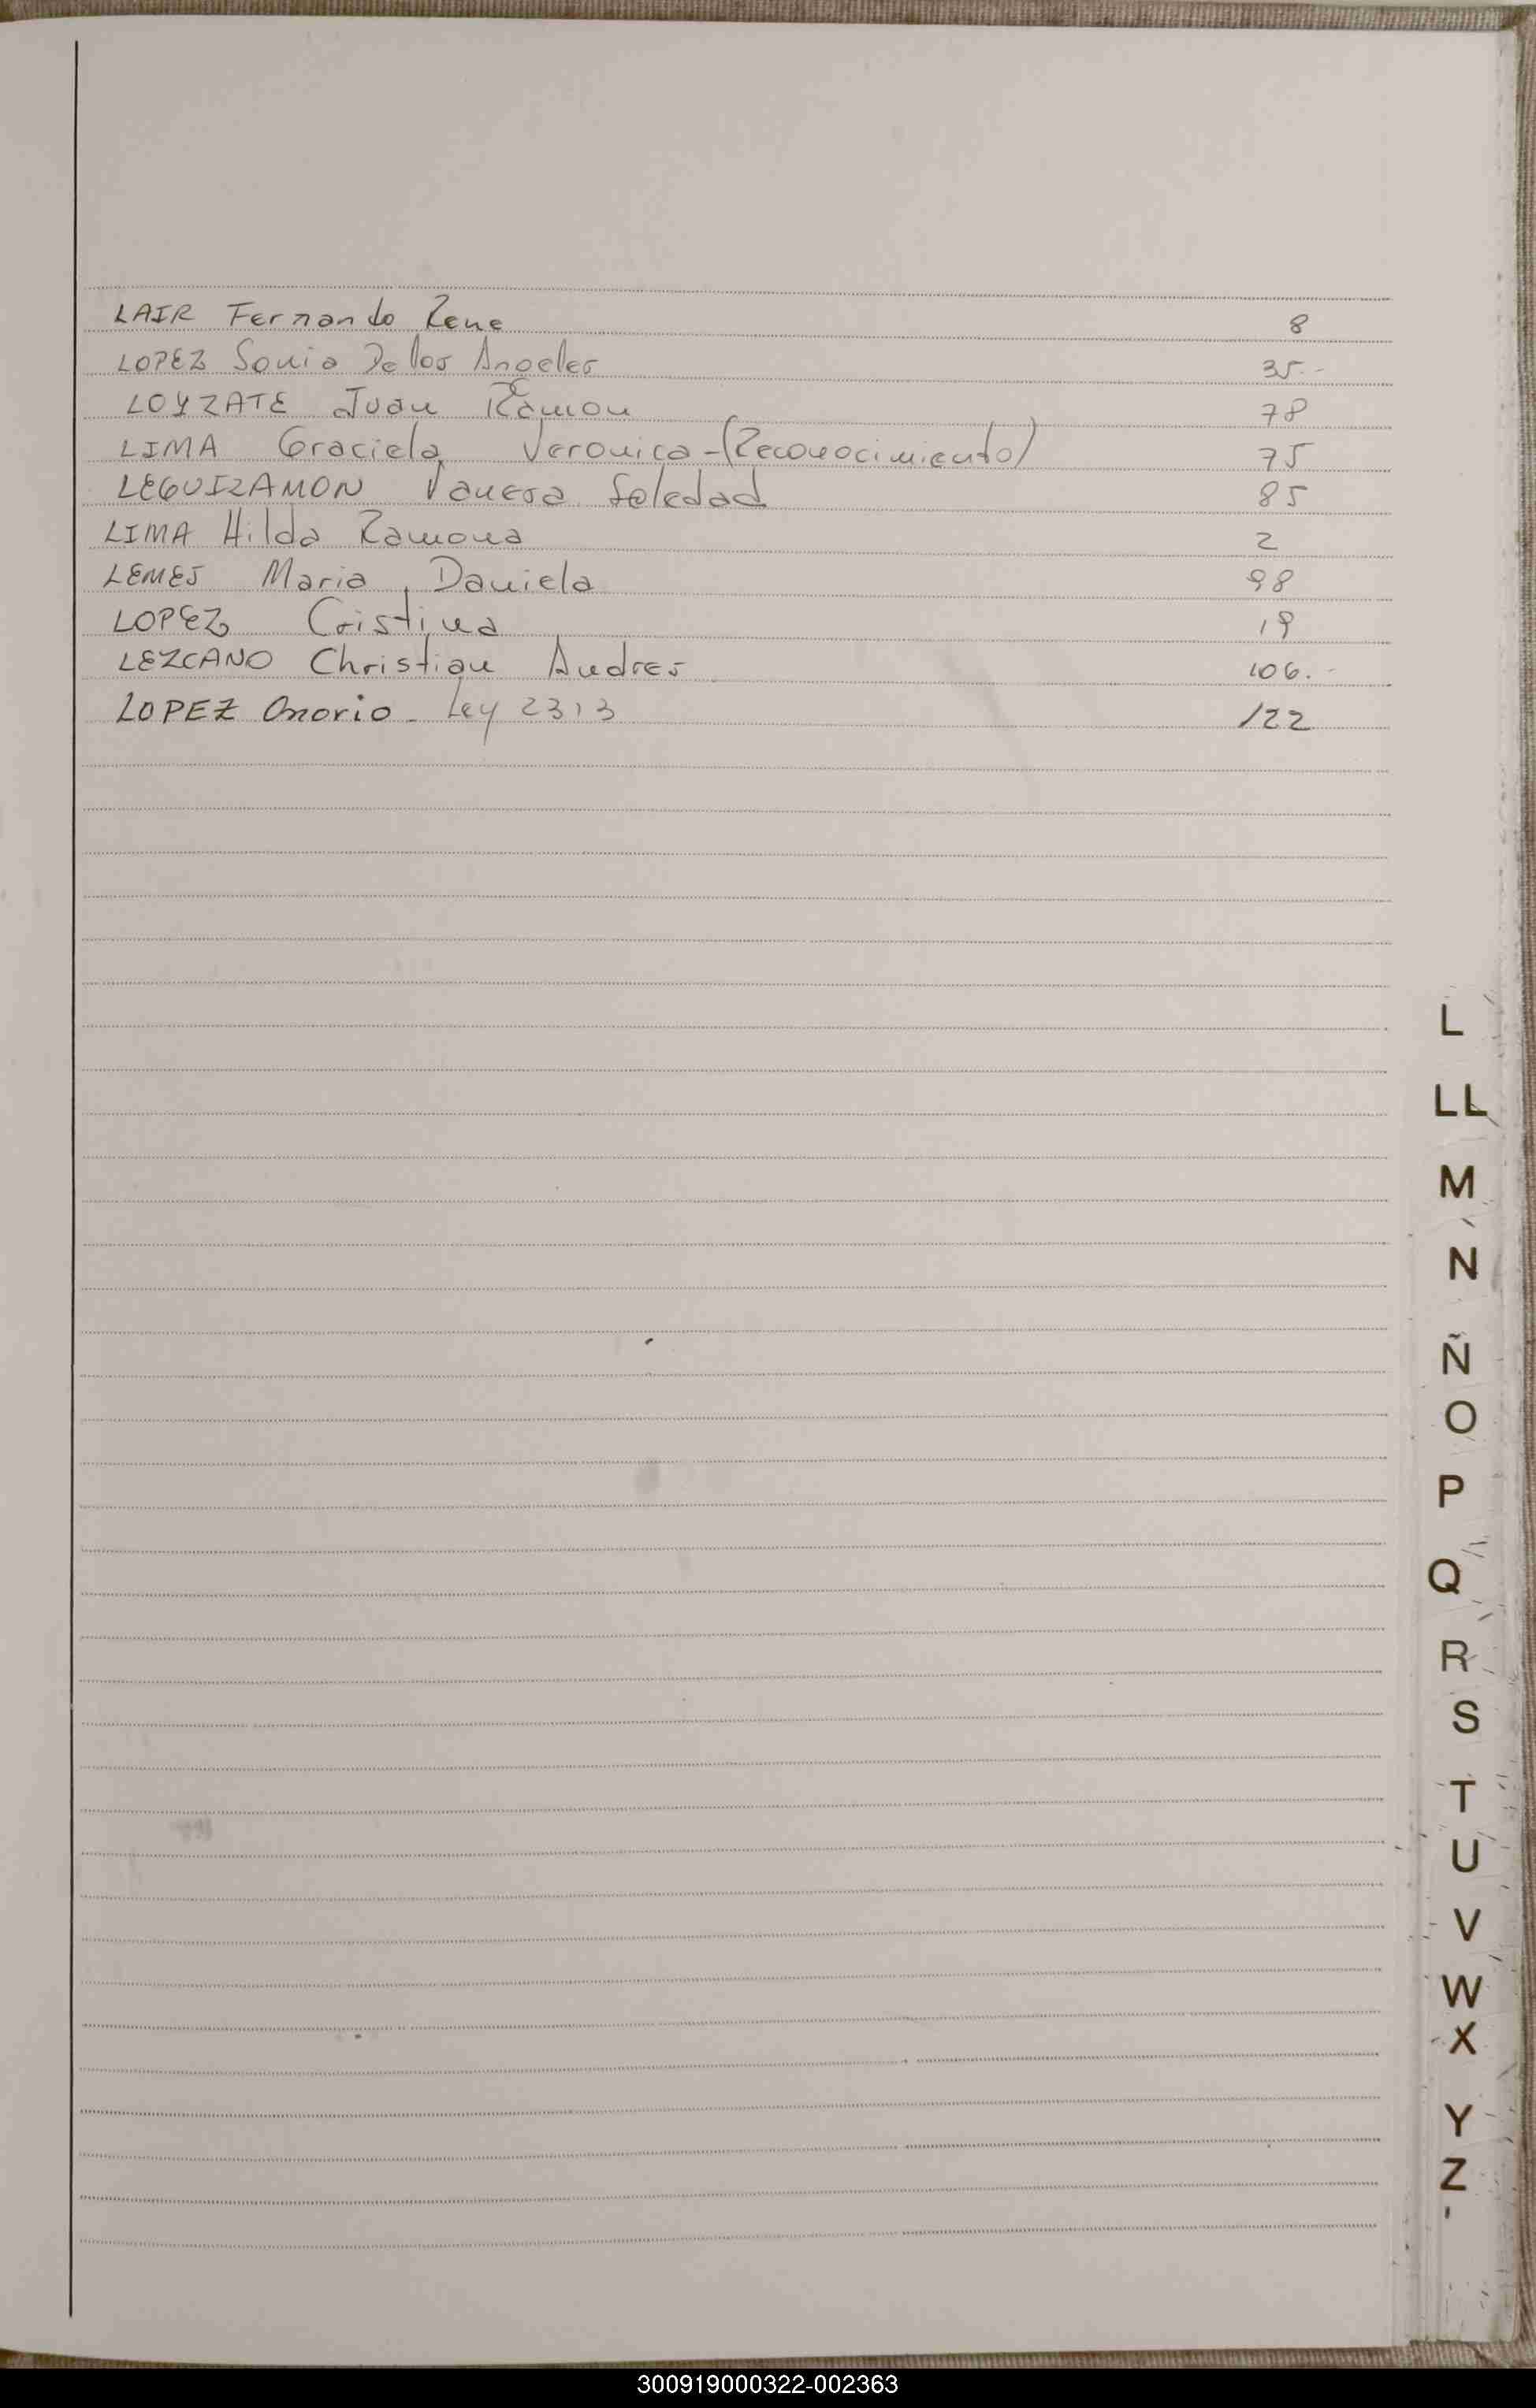 LAIR Fernando Rene 8
LOPEZ Sonia De los Angeles 35.-
LOYZATE Juan Ramon 78
LIMA Graciela Veronica-(Reconocimiento) 75
LEGUIZAMON Vanesa Soledad 85
LIMA Hilda Ramona 2
LEMES Maria Daniela 98
LOPEZ Cristina 19
LEZCANO Christian Andres 106.-
LOPEZ Onorio - Ley 2313 122
L
LL
M
N
Ñ
O
P
Q
R
S
T
U
V
W
X
Y
Z
300919000322-002363